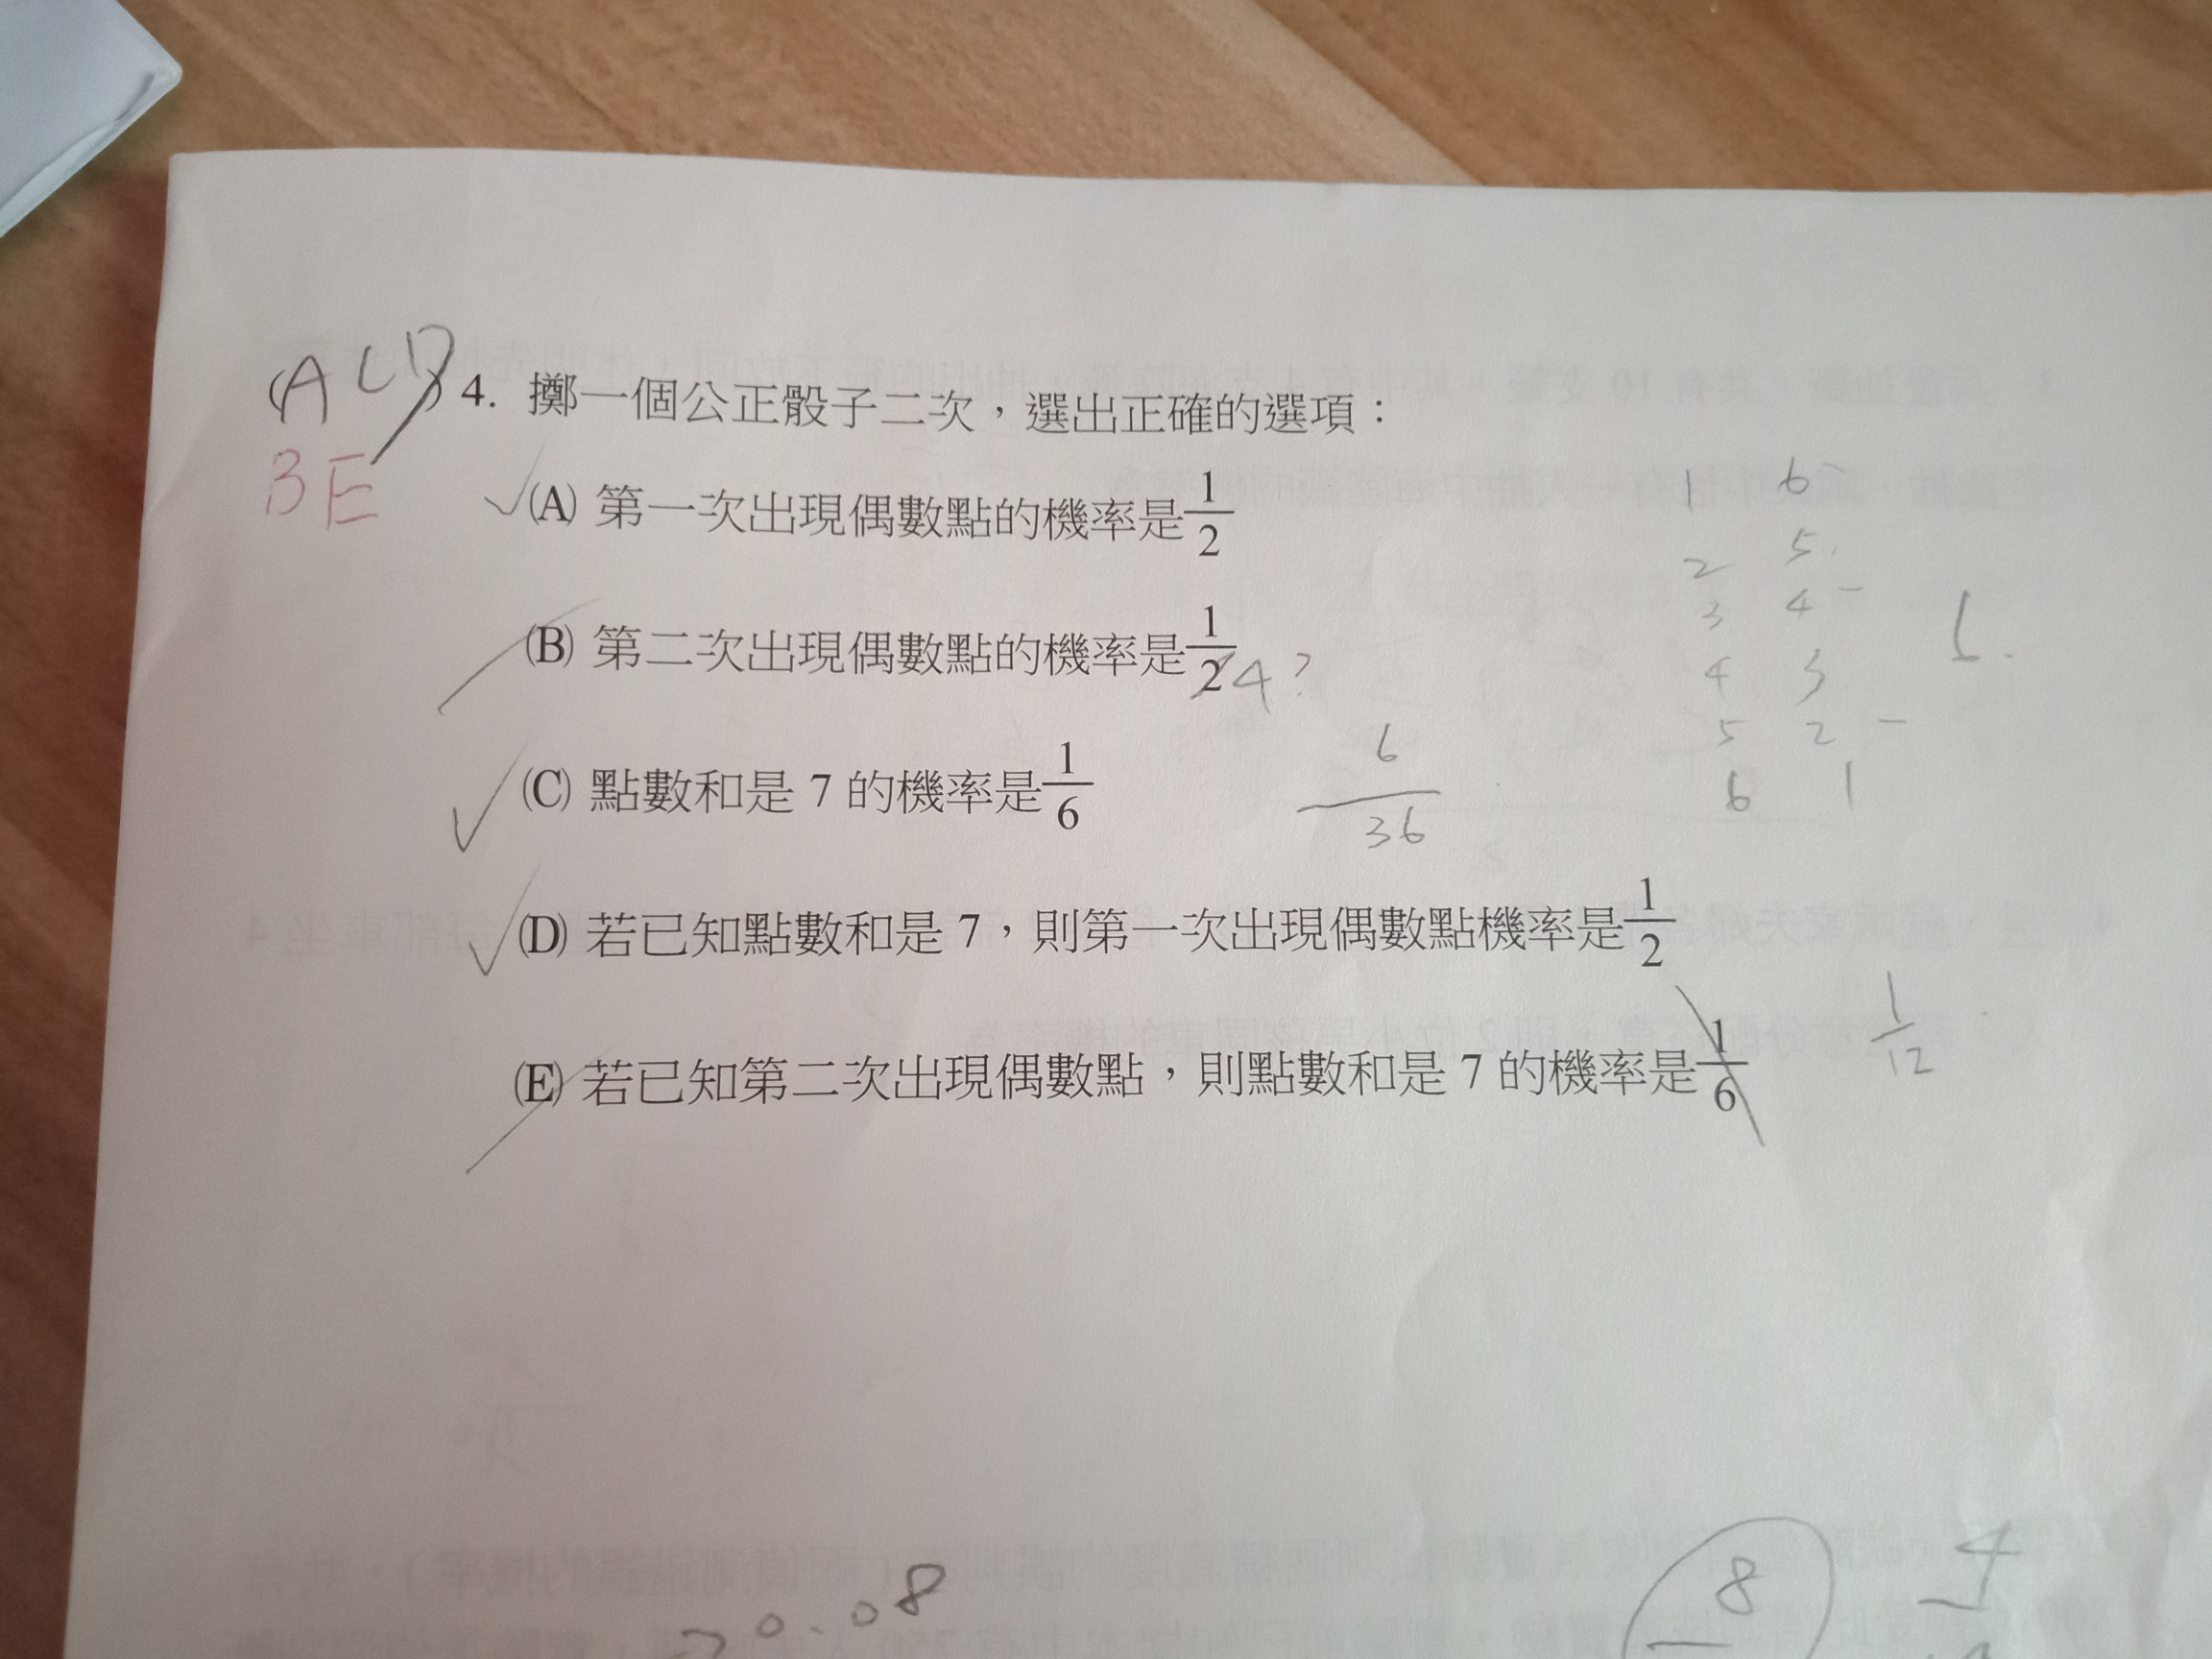 (ACD) 4. 擲一個公正骰子二次，選出正確的選項：
BE
(A) 第一次出現偶數點的機率是1/2
(B) 第二次出現偶數點的機率是1/2 4?
(C) 點數和是 7 的機率是1/6
6/36
(D) 若已知點數和是 7，則第一次出現偶數點機率是1/2
(E) 若已知第二次出現偶數點，則點數和是 7 的機率是1/6
1/12
1 6
2 5
3 4
4 3
5 2
6 1
0.08
8
4